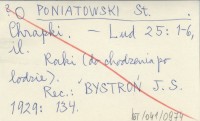 PONIATOWSKI St.
Chrapki. – Lud 25: 1-6,
il.
Raki (do chodzenia po
lodzie).
Rec.: BYSTROŃ J.S.
1929: 134.